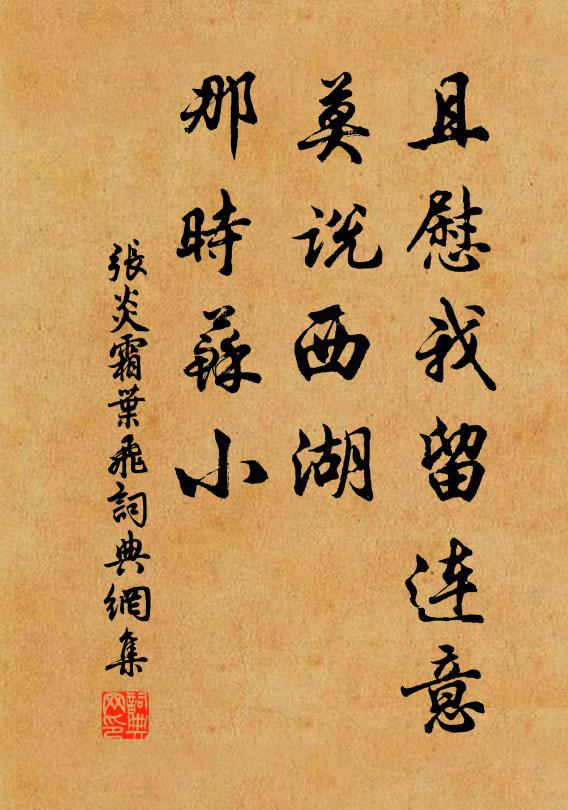 且慰我留連意
莫說西湖
那時蘇小
張炎霜葉飛詞典網集
詞典网印